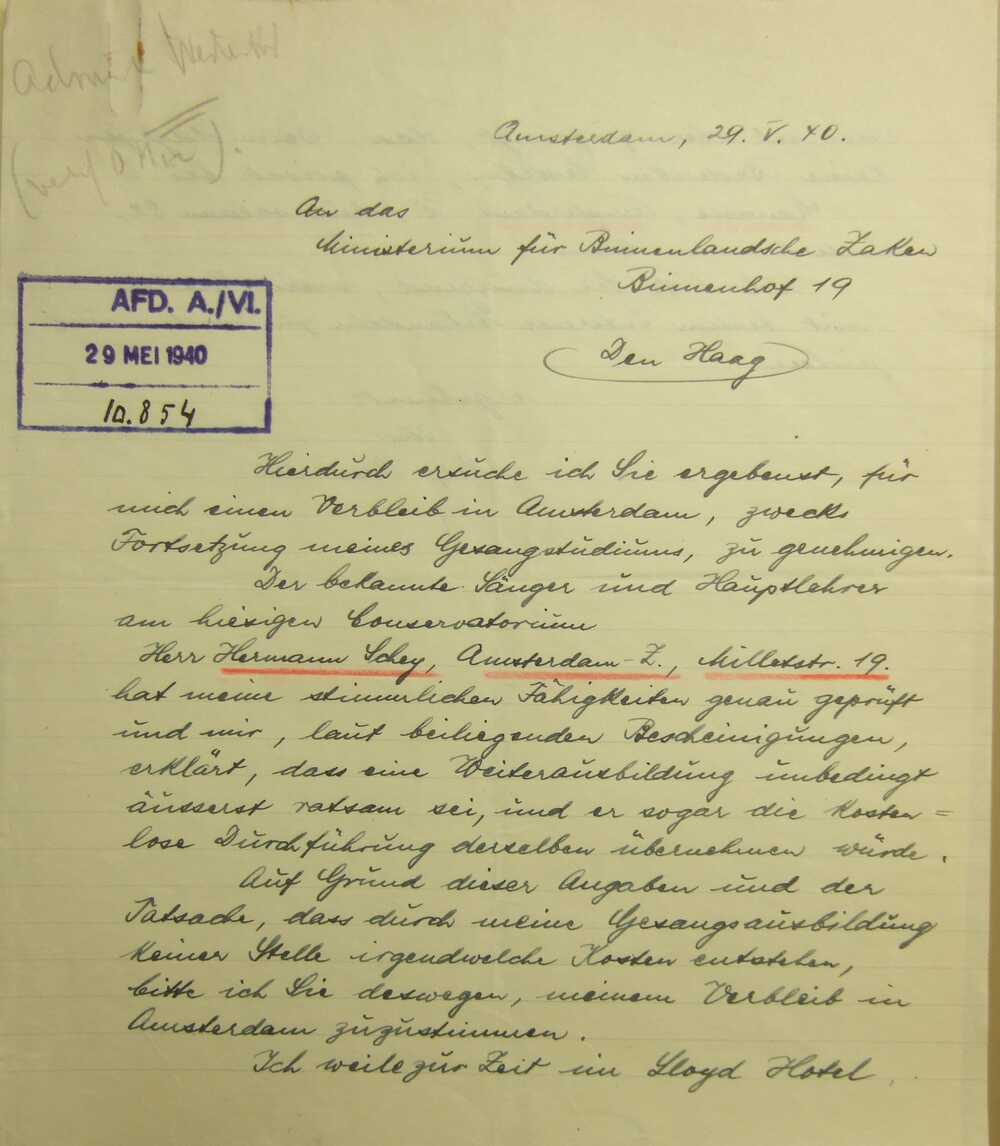 Amsterdam, 29. V. 40.
An das
Ministerium für Binnenlandsche Zaken
Binnenhof 19
Den Haag
AFD. A./VI.
29 MEI 1940
10.854
Hierdurch ersuche ich Sie ergebenst, für
mich einen Verbleib in Amsterdam, zwecks
Fortsetzung meines Gesangstudiums, zu genehmigen.
Der bekannte Sänger und Hauptlehrer
am hiesigen Conservatorium
Herr Hermann Schey, Amsterdam-Z., Milletstr. 19.
hat meine stimmlichen Fähigkeiten genau geprüft
und mir, laut beiliegenden Bescheinigungen,
erklärt, dass eine Weiterausbildung unbedingt
äusserst ratsam sei, und er sogar die kosten=
lose Durchführung derselben übernehmen würde.
Auf Grund dieser Angaben und der
Tatsache, dass durch meine Gesangsausbildung
keiner Stelle irgendwelche Kosten entstehen,
bitte ich Sie deswegen, meinem Verbleib in
Amsterdam zuzustimmen.
Ich weile zur Zeit im Lloyd Hotel